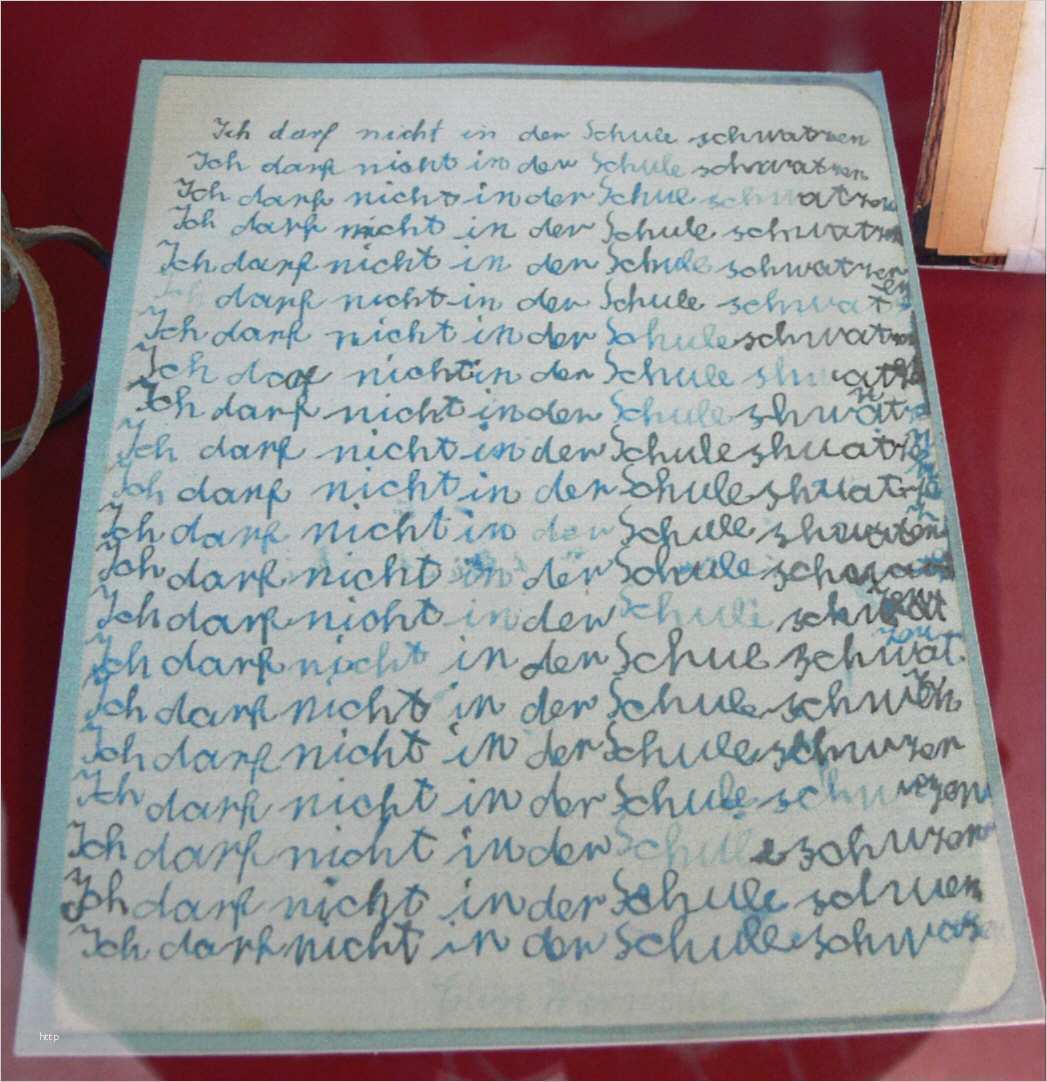 Ich darf nicht in der Schule schwatzen
Ich darf nicht in der Schule schwatzen
Ich darf nicht in der Schule schwatzen
Ich darf nicht in der Schule schwatzen
Ich darf nicht in der Schule schwatzen
Ich darf nicht in der Schule schwatzen
Ich darf nicht in der Schule schwatzen
Ich darf nicht in der Schule
Ich darf nicht in der Schule
Ich darf nicht in der Schule
Ich darf nicht in der Schule
Ich darf nicht in der Schule
Ich darf nicht in der Schule
Ich darf nicht in der Schule schwatzen
Ich darf nicht in der Schule schwatzen
Ich darf nicht in der Schule
Ich darf nicht in der Schule
Ich darf nicht in der Schule
Ich darf nicht in der Schule schwzen
Ich darf nicht in der Schule
Ich darf nicht in der Schule
http